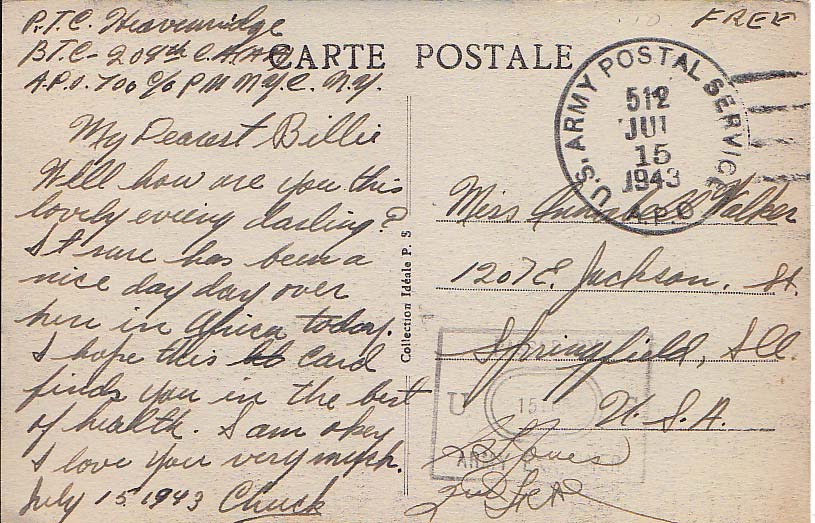 P.T.C. Heavenridge
FREE
BTC - 208th C.A.
A.P.O. 700 c/o P M N.Y.C. N.Y.
CARTE POSTALE
U.S. ARMY POSTAL SERVICE
512
JUL
15
1943
A.P.O.
My Dearest Billie
Well how are you this
lovely evening darling?
It sure has been a
nice day day over
here in Africa today.
I hope this card
finds you in the best
of health. I am okey
I love you very much.
July 15, 1943 Chuck
Collection Idéale P. S
Miss Walker
1207 E. Jackson. St.
Springfield, Ill.
U. S. A.
U
ARMY
Jones
2nd Lt